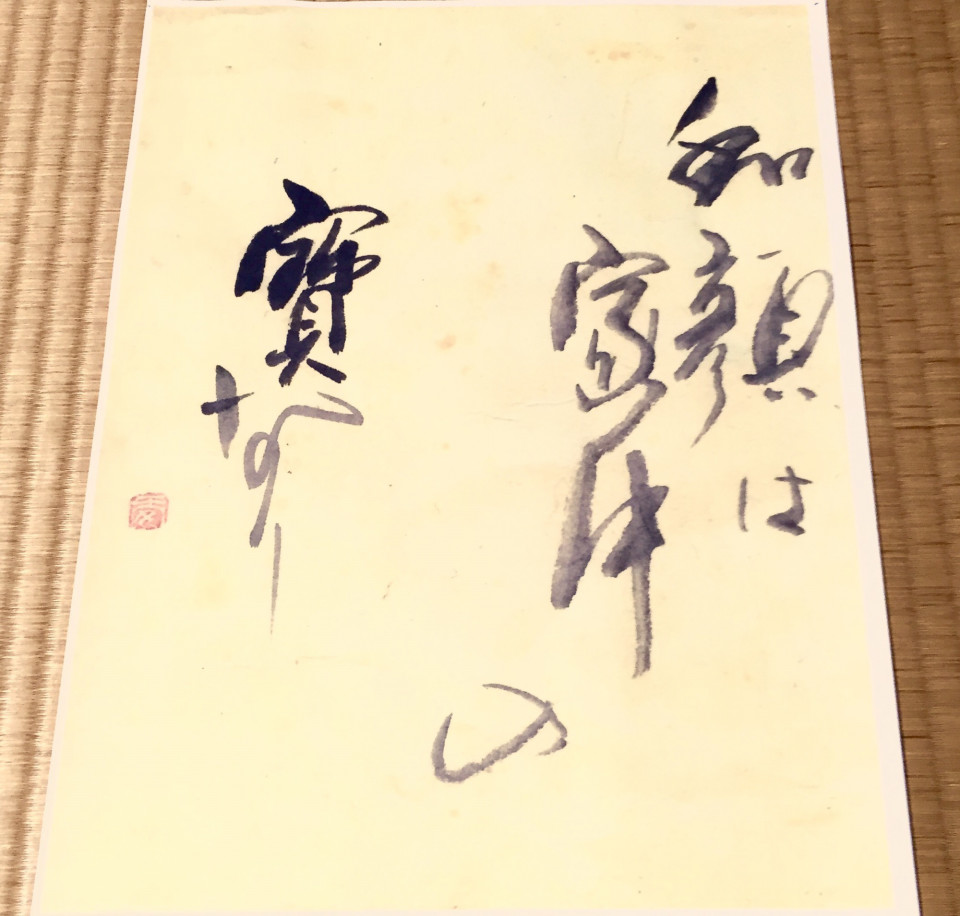 和顔は
家中の
寶なり